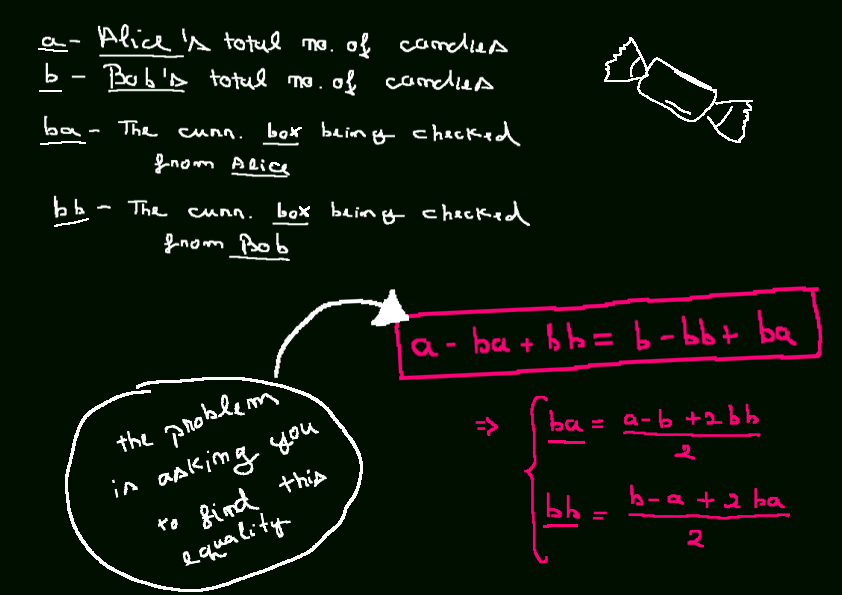 a - Alice's total no. of candies
b - Bob's total no. of candies
ba - The curr. box being checked
from Alice
bb - The curr. box being checked
from Bob
a - ba + bb = b - bb + ba
the problem
is asking you
to find this
equality
⇒ { ba = (a - b + 2bb) / 2
bb = (b - a + 2ba) / 2